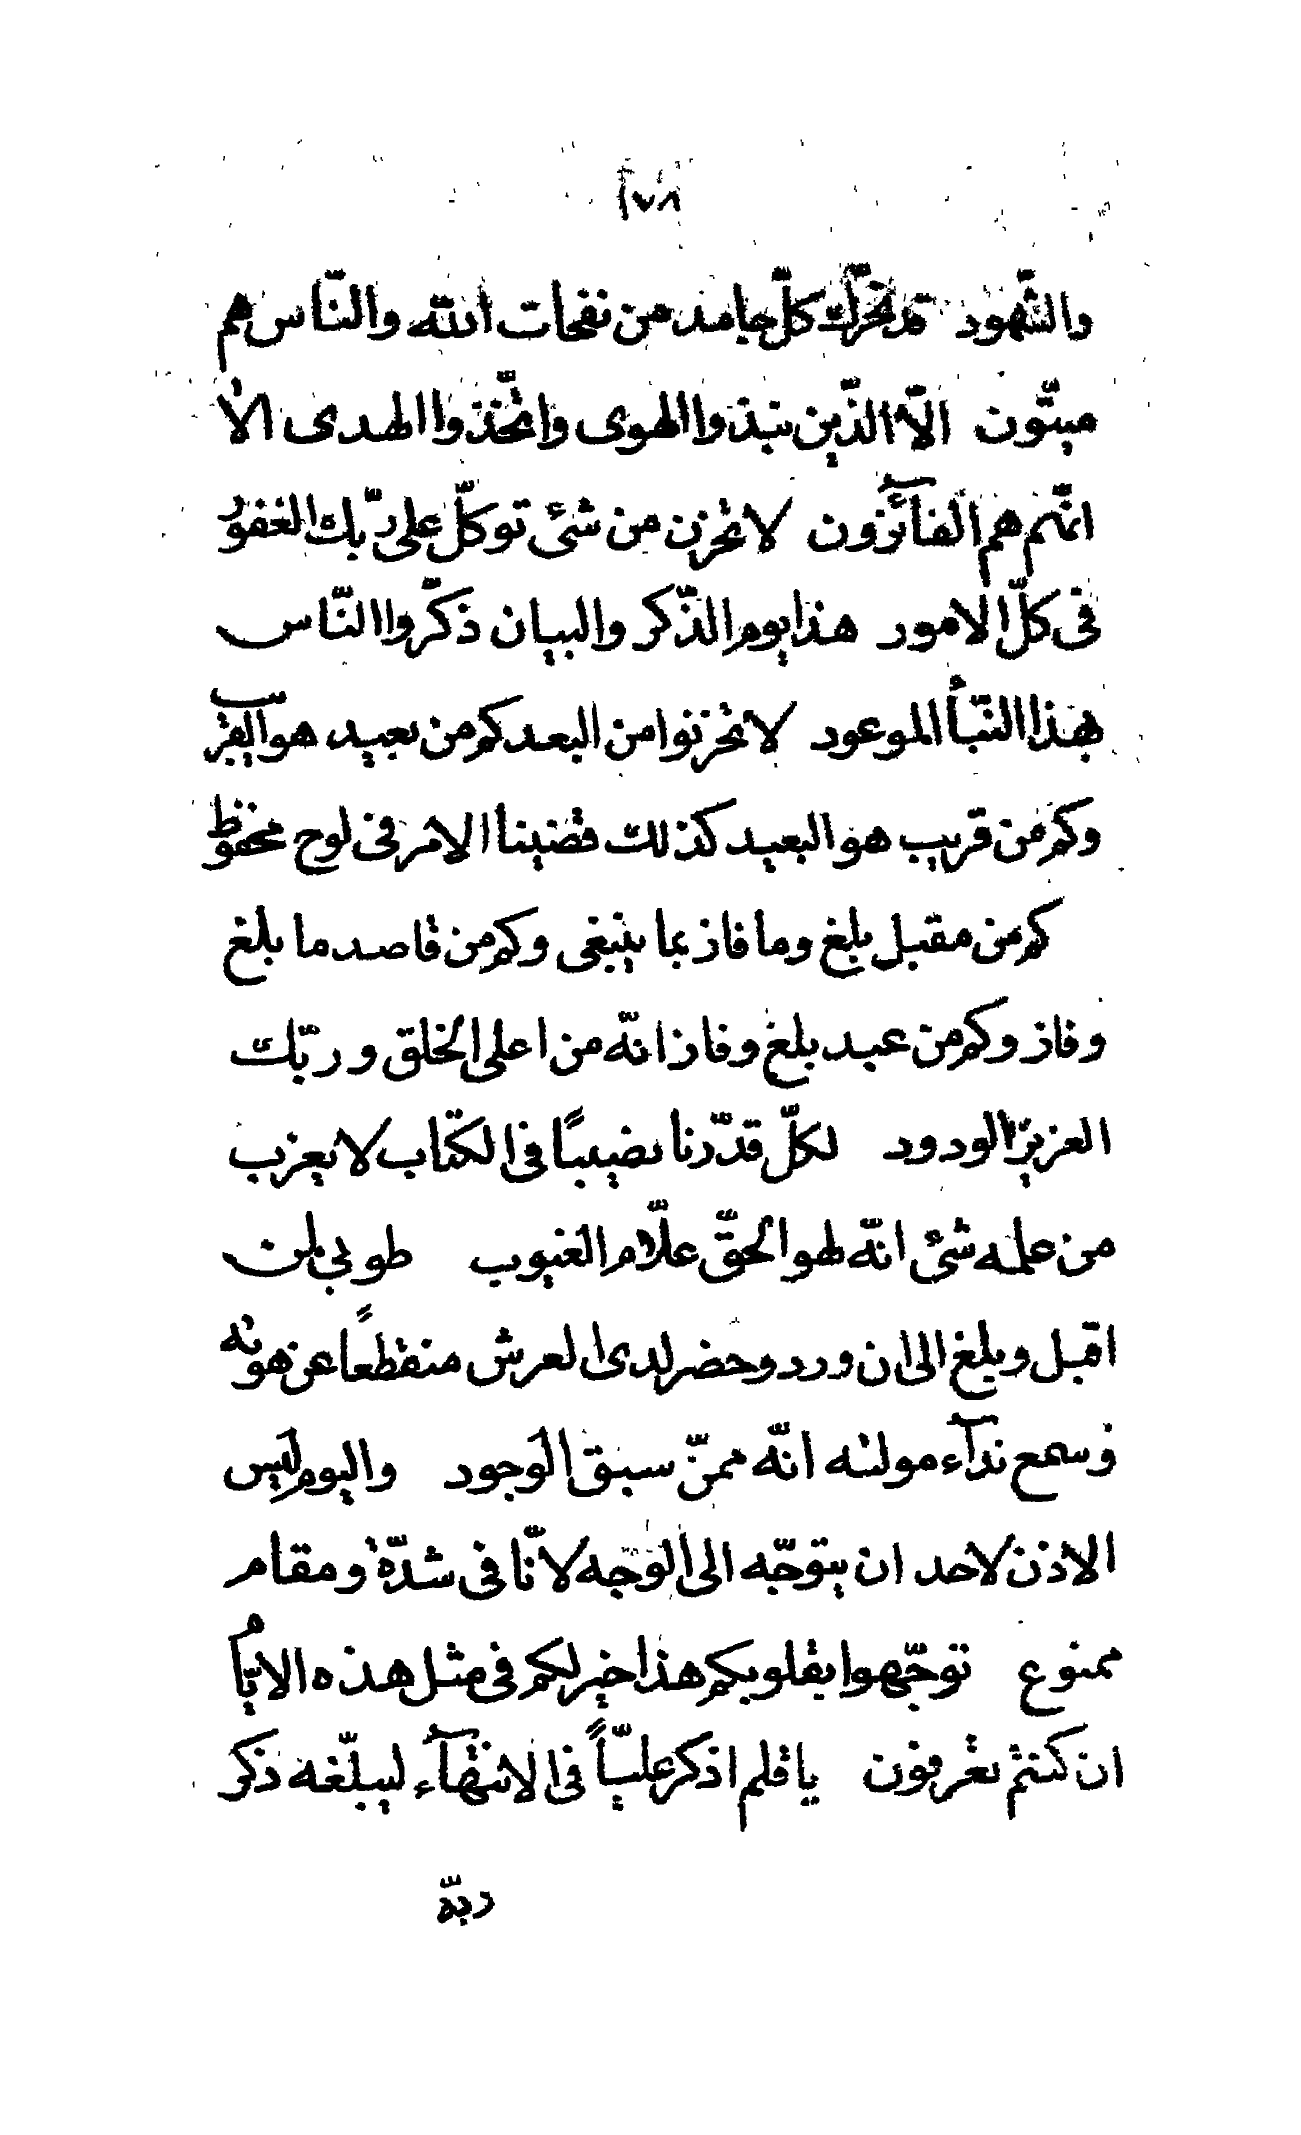 ١٧٨
والشّهود قد تحرّك كلّ جامد من نفحات اللّه والنّاس هم
ميّتون الّا الّذين نبذوا الهوى واتّخذوا الهدى الا
انّهم هم الفآئزون لا تحزن من شئ توكّل على ربّك الغفور
فى كلّ الامور هذا يوم الذّكر والبيان ذكّروا النّاس
بهذا النّبأ الموعود لا تحزنوا من البعد كم من بعيد هو القريب
وكم من قريب هو البعيد كذلك قضينا الامر فى لوح محفوظ
كم من مقبل بلغ وما فاز بما ينبغى وكم من قاصد ما بلغ
وفاز وكم من عبد بلغ وفاز انّه من اعلى الخلق وربّك
العزيز الودود لكلّ قدّرنا نصيبًا فى الكتاب لا يعزب
من علمه شئ انّه لهو الحقّ علّام الغيوب طوبى لمن
اقبل وبلغ الى ان ورد وحضر لدى العرش منقطعًا عن هوىه
وسمع ندآء موليه انّه ممّن سبق الوجود واليوم ليس
الاذن لاحد ان يتوجّه الى الوجه لانّا فى شدّة ومقام
ممنوع توجّهوا بقلوبكم هذا خير لكم فى مثل هذه الايّام
ان كنتم تعرفون يا قلم اذكر عليّاً فى الانتهآء ليبلّغه ذكر
ربّه